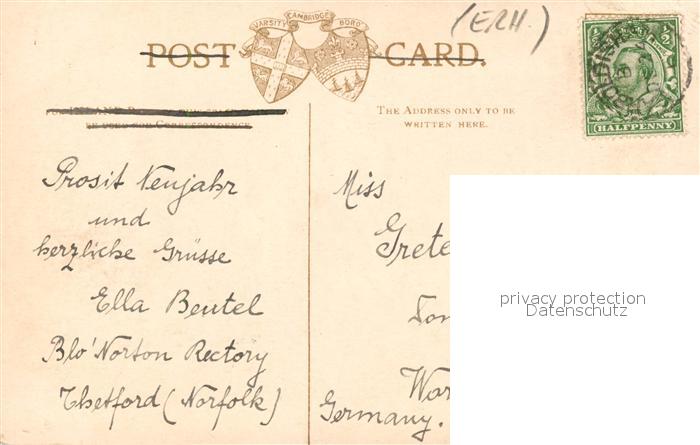 (ERH.)
VARSITY CAMBRIDGE BORO
POST CARD.
THE ADDRESS ONLY TO BE
WRITTEN HERE.
BE USED FOR CORRESPONDENCE
HALFPENNY
Prosit Neujahr
und
herzliche Grüsse
Ella Beutel
Blo' Norton Rectory
Thetford (Norfolk)
Miss
Grete
Germany.
privacy protection
Datenschutz